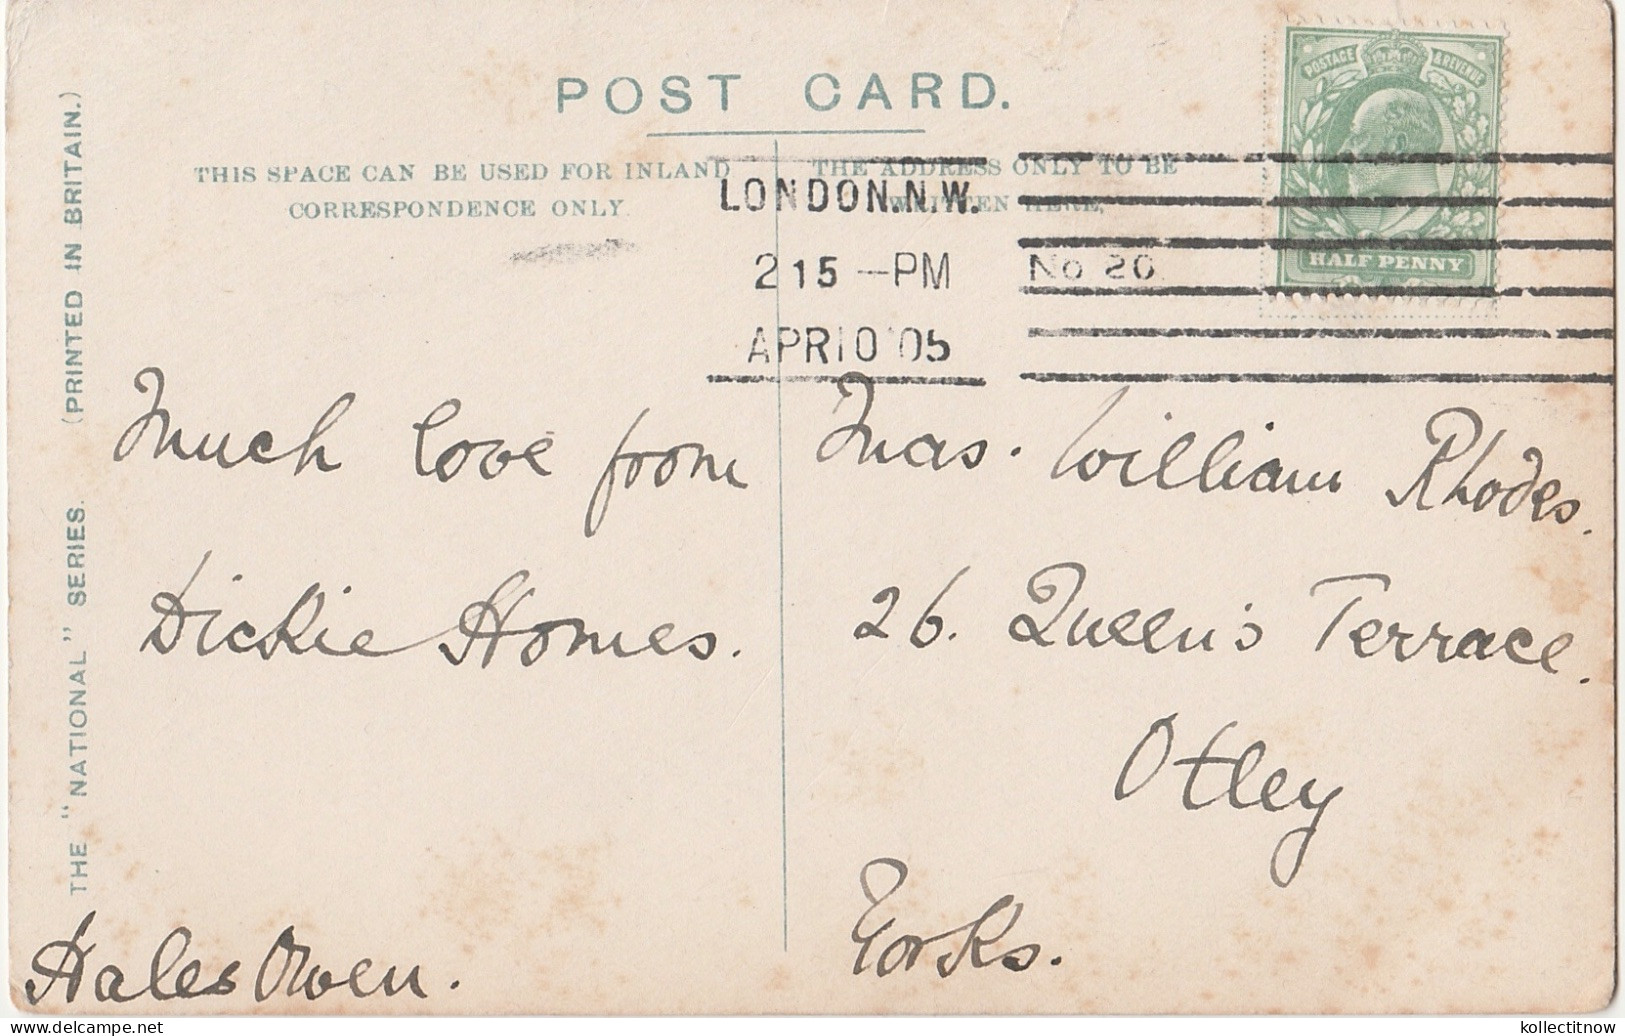 POST CARD.
THIS SPACE CAN BE USED FOR INLAND
CORRESPONDENCE ONLY.
THE ADDRESS ONLY TO BE
WRITTEN HERE.
POSTAGE & REVENUE
HALF PENNY
LONDON.N.W.
2 15 - PM
APR 10 05
No 20
THE "NATIONAL" SERIES. (PRINTED IN BRITAIN.)
Much love from
Dickie Homes.
Hales Owen.
Mas. William Rhodes.
26. Queen's Terrace.
Otley
Yorks.
kollectitnow